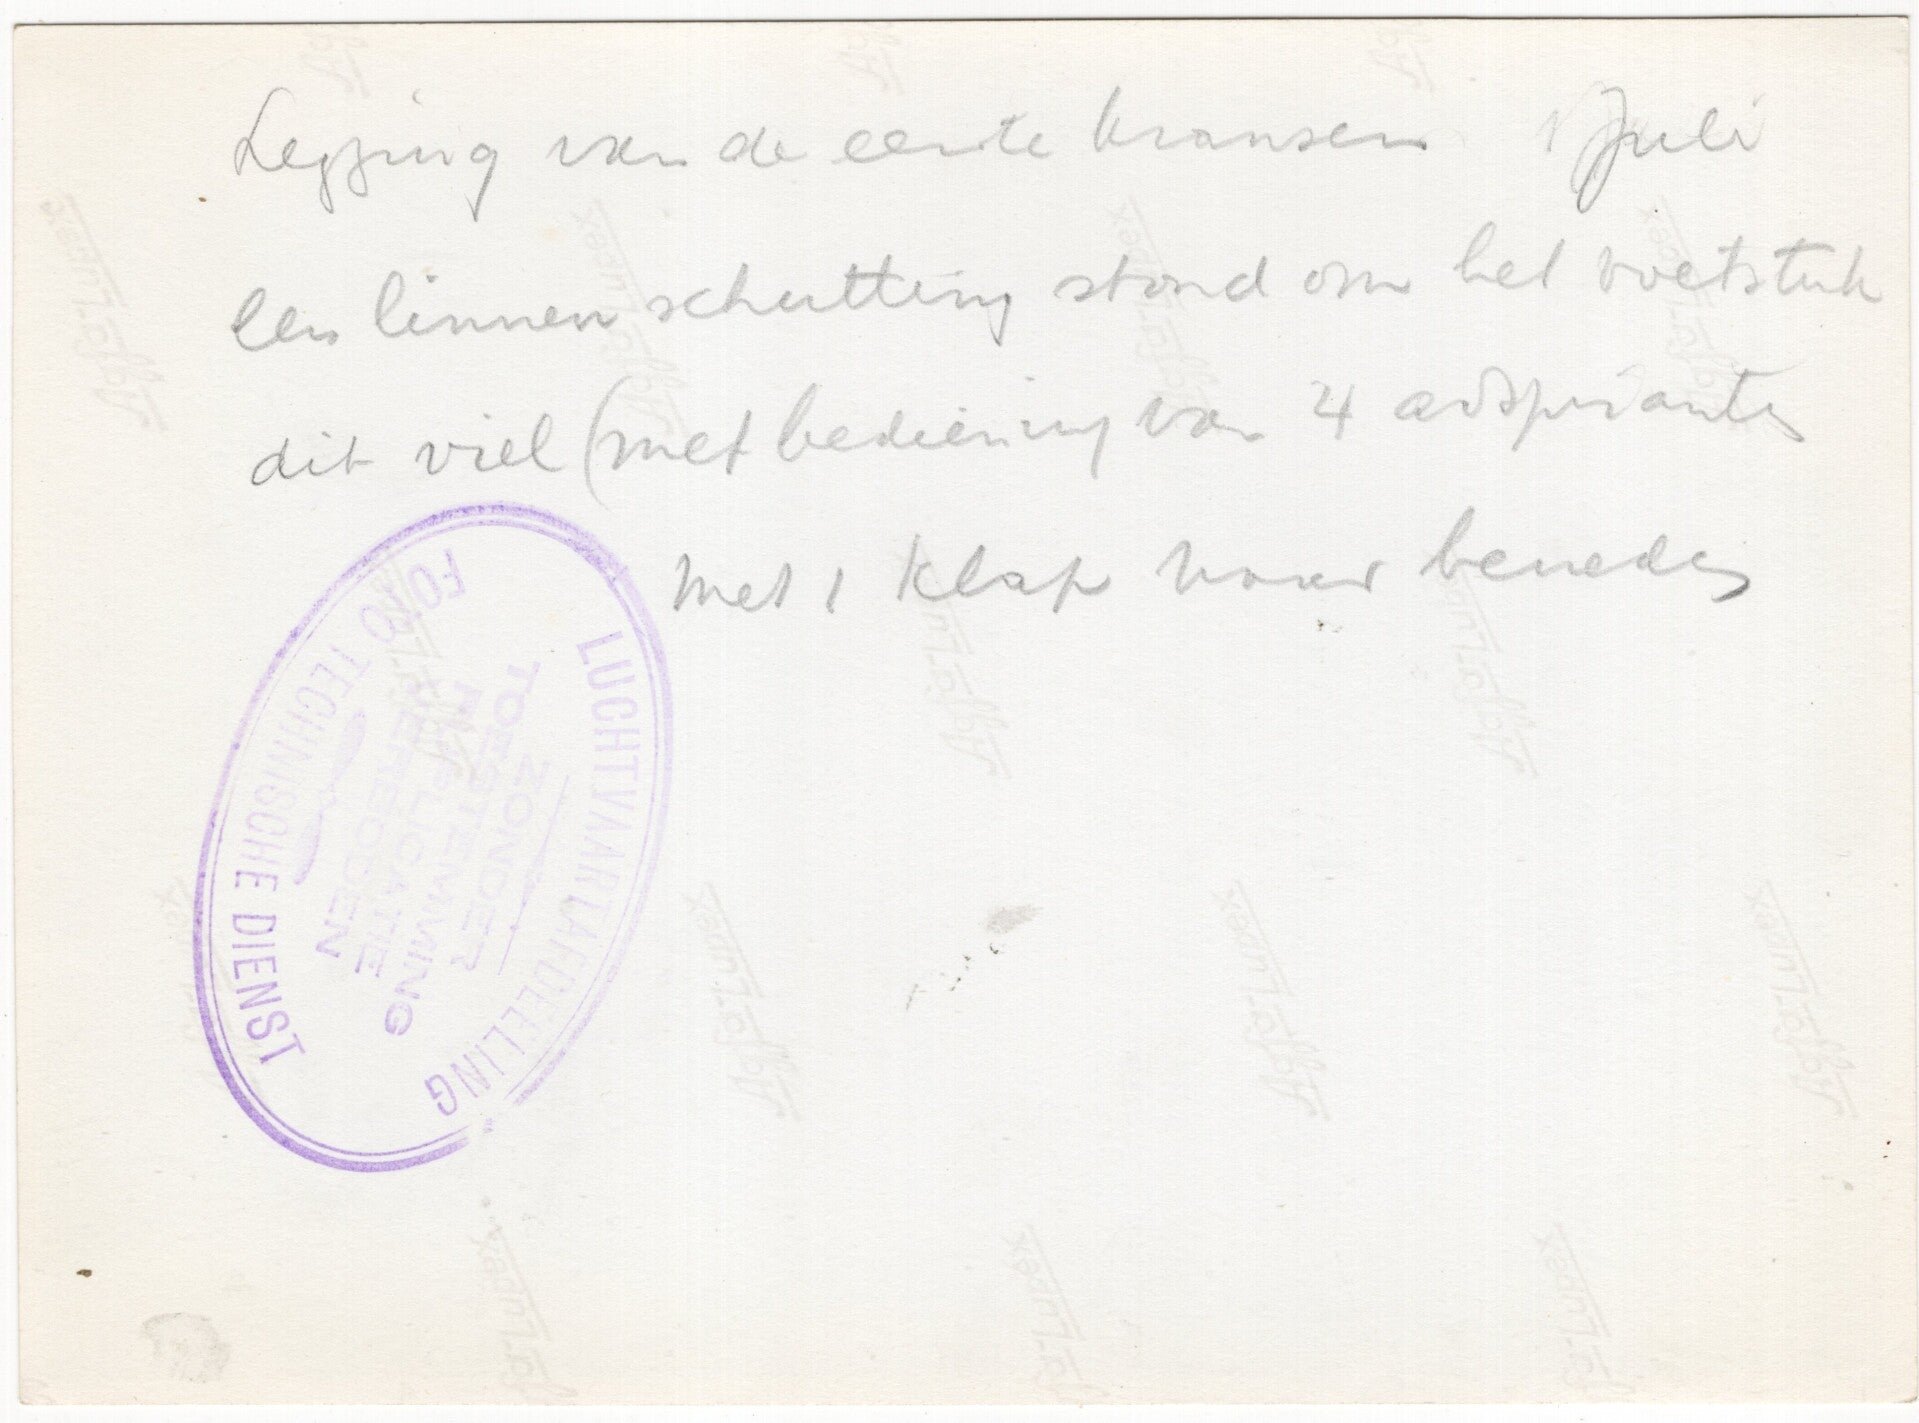 Legging van de eerste kransen 1 Juli
een linnen schutting stond om het voetstuk
dit viel (met bediening van 4 adspirants
met 1 klap naar beneden
LUCHTVAARTAFDEELING
ZONDER
TOESTEMMING
REPLICATIE
VERBODEN
FOTO TECHNISCHE DIENST
Agfa-Lupex